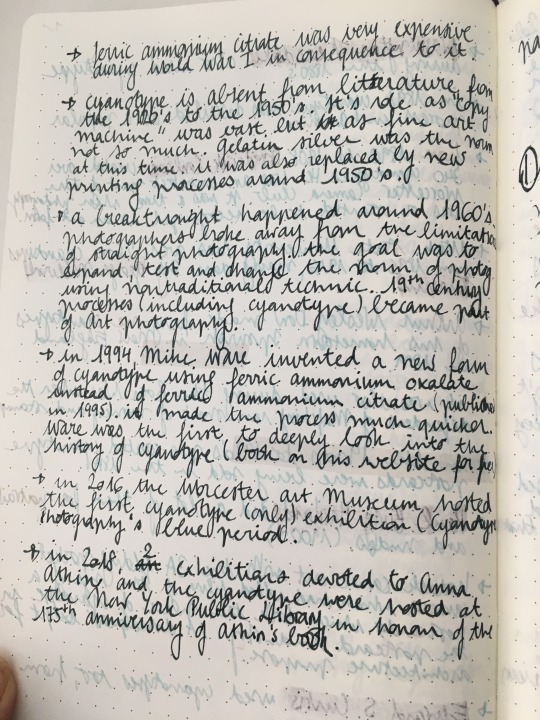 → ferric ammonium citrate was very expensive
during world war I in consequence to it.
→ cyanotype is absent from litterature from
the 1920's to the 1950's. It's role as "copy
machine" was vast but as fine art
not so much. gelatin silver was the norm
at this time. it was also replaced by new
printing processes around 1950's.
→ a breakthrought happened around 1960's
photographers broke away from the limitation
of straight photography. the goal was to
expand, test and change the norm of photog
using nontraditional technic. 19th century
processes (including cyanotype) became part
of Art photography.
→ in 1994 Mike Ware invented a new form
of cyanotype using ferric ammonium oxalate
instead of ferric ammonium citrate (published
in 1995) it made the process much quicker.
Ware was the first to deeply look into the
history of cyanotype (book on his website for free)
→ in 2016 the Worcester art Museum hosted
the first cyanotype (only) exhibition (Cyanotype
Photography's blue period.
→ in 2018, 2 exhibitions devoted to Anna
Atkin and the cyanotype were hosted at
the New York Public Library in honour of the
175th anniversary of Atkin's book.
pa
1
Edward S. Curtis